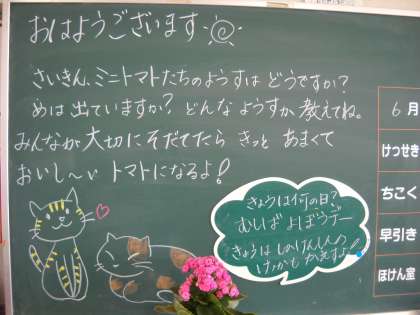 おはようございます
さいきん、ミニトマトたちのようすは どうですか?
めは 出ていますか? どんな ようすか 教えてね。
みんなが 大切に そだてたら きっと あまくて
おいし〜い トマトになるよ!
きょうは何の日?
むしば よぼうデー
きょうは しかけんしんの
けっかも かえすよ!
6月
けっせき
ちこく
早引き
ほけん室